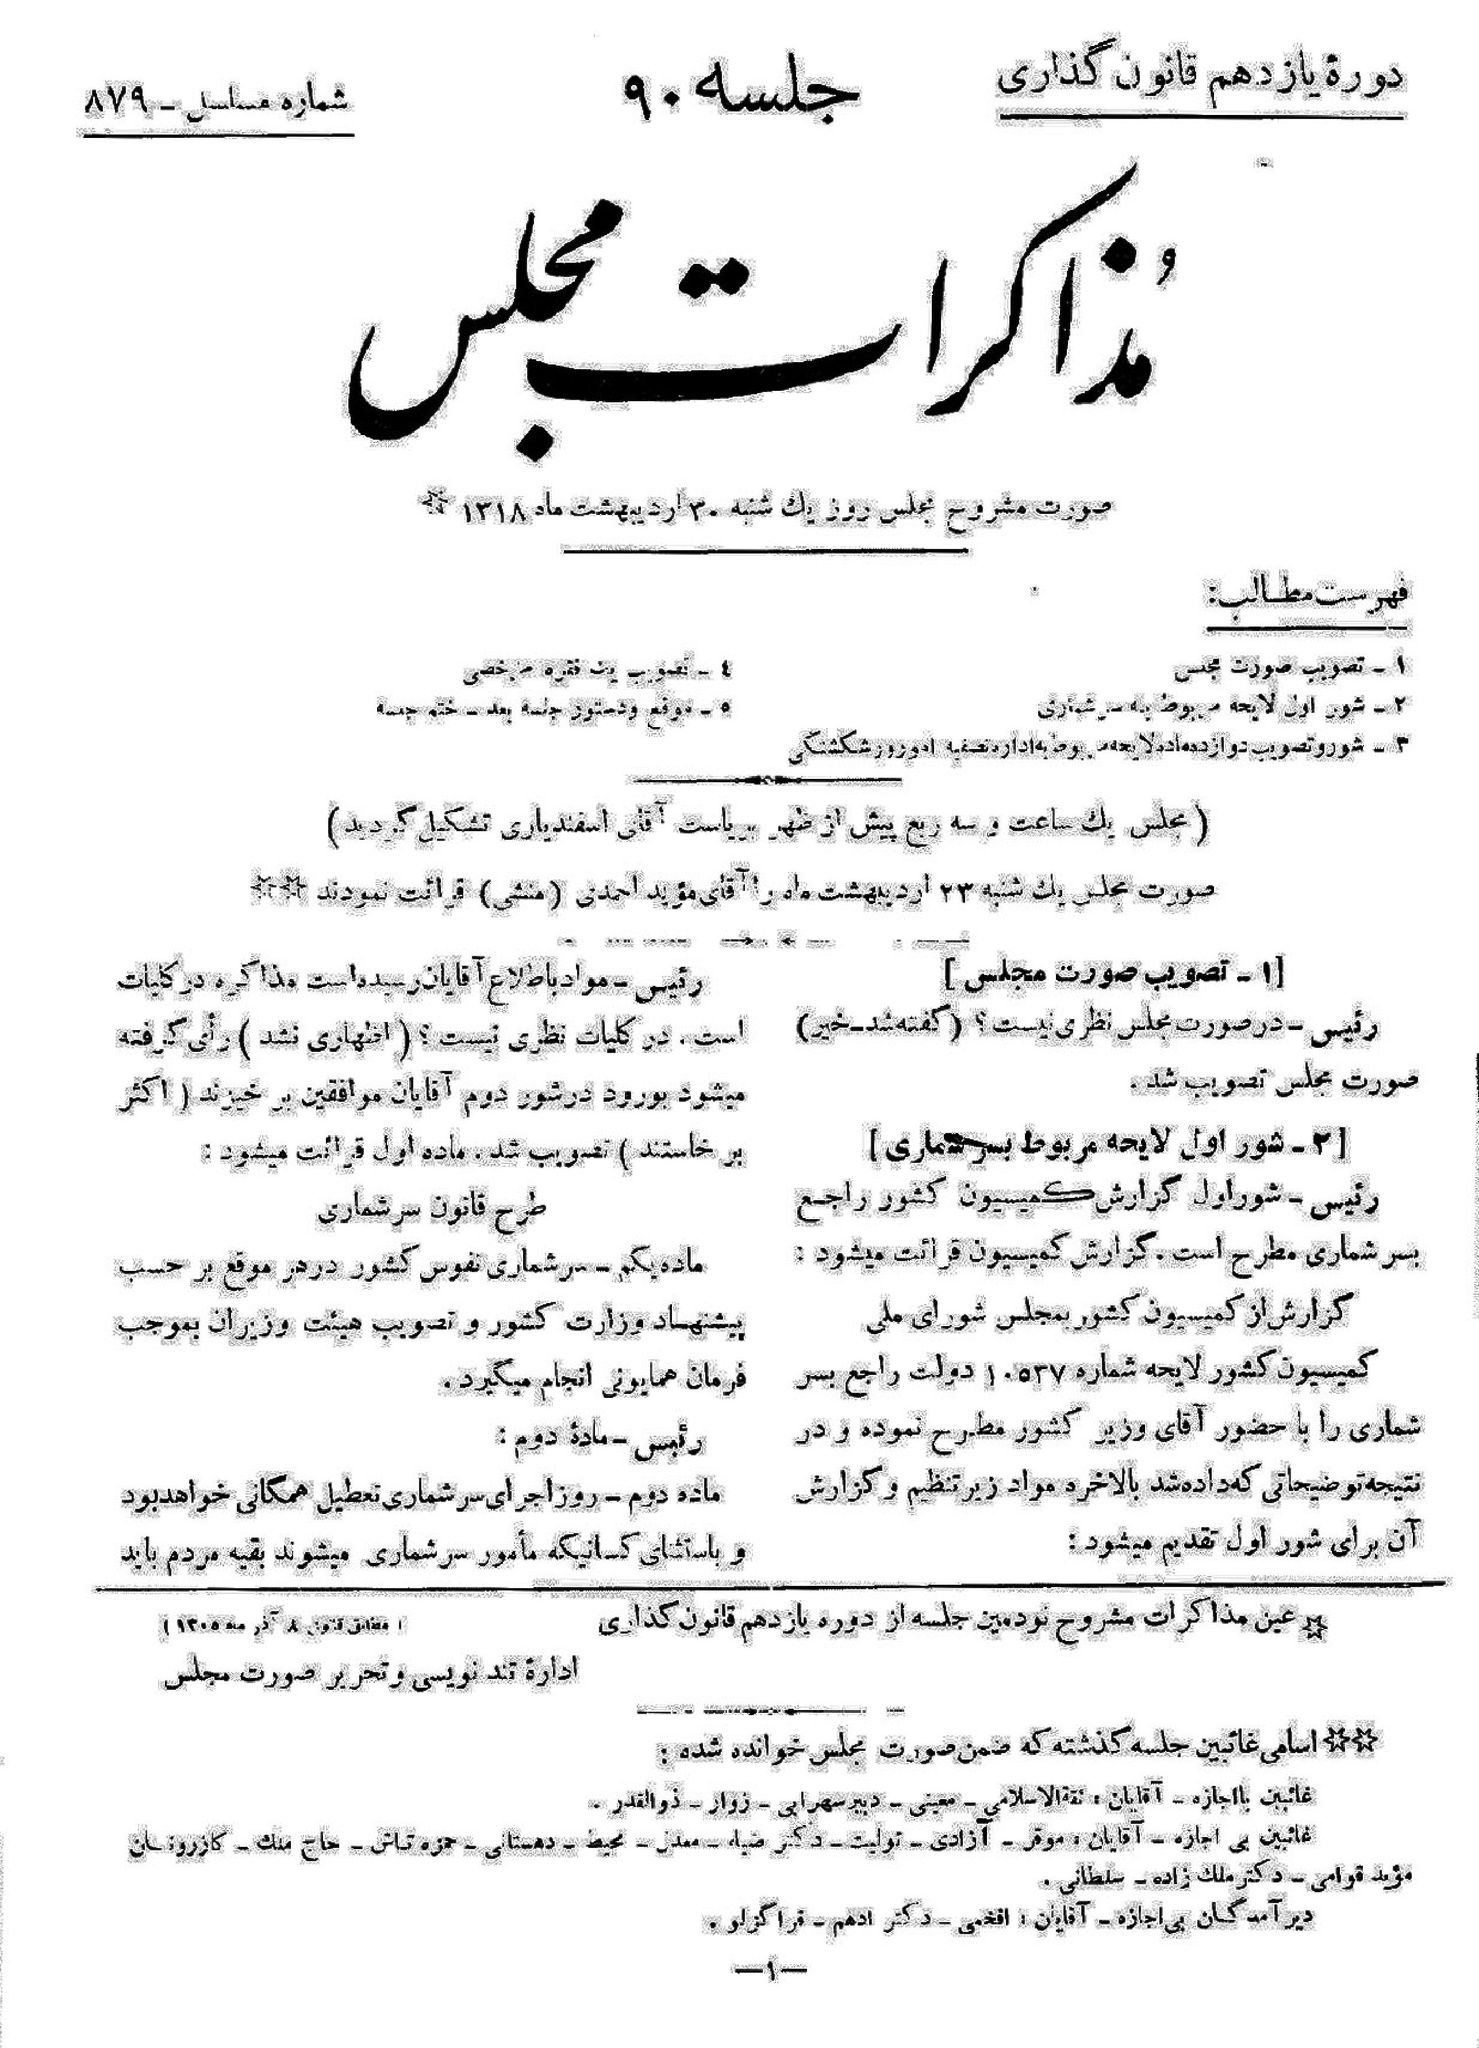 دورهٔ یازدهم قانون گذاری
جلسه ۹۰
شماره مسلسل ـ ۸۷۹
مُذاکرات مجلس
صورت مشروح مجلس روز یك شنبه ۳۰ اردیبهشت ماه ۱۳۱۸ ☆
فهرست مطالب:
۱ ـ تصویب صورت مجلس
۲ ـ شور اول لایحه مربوط به سرشماری
۳ ـ شور و تصویب دوازده ماده لایحه مربوط به اداره تصفیه امور ورشکستگی
۴ ـ تصویب یك فقره مرخصی
۵ ـ موقع و دستور جلسه بعد ـ ختم جلسه
( مجلس یك ساعت و سه ربع پیش از ظهر بریاست آقای اسفندیاری تشکیل گردید )
صورت مجلس یك شنبه ۲۳ اردیبهشت ماه را آقای مؤید احمدی (منشی) قرائت نمودند ☆☆
[ ۱ ـ تصویب صورت مجلس ]
رئیس ـ در صورت مجلس نظری نیست ؟ (گفته شد ـ خیر)
صورت مجلس تصویب شد .
[ ۲ ـ شور اول لایحه مربوط بسرشماری ]
رئیس ـ شور اول گزارش کمیسیون کشور راجع
بسر شماری مطرح است . گزارش کمیسیون قرائت میشود :
گزارش از کمیسیون کشور بمجلس شورای ملی
کمیسیون کشور لایحه شماره ۱۰۵۳۷ دولت راجع بسر
شماری را با حضور آقای وزیر کشور مطرح نموده و در
نتیجه توضیحاتی که داده شد بالاخره مواد زیر تنظیم و گزارش
آن برای شور اول تقدیم میشود :
رئیس ـ مواد باطلاع آقایان رسیده است مذاکره در کلیات
است . در کلیات نظری نیست ؟ ( اظهاری نشد ) رأی گرفته
میشود بورود در شور دوم آقایان موافقین بر خیزند ( اکثر
بر خاستند ) تصویب شد . ماده اول قرائت میشود :
طرح قانون سرشماری
ماده یکم ـ سرشماری نفوس کشور در هر موقع بر حسب
پیشنهاد وزارت کشور و تصویب هیئت وزیران بموجب
فرمان همایونی انجام میگیرد .
رئیس ـ مادهٔ دوم :
ماده دوم ـ روز اجرای سرشماری تعطیل همگانی خواهد بود
و باستثنای کسانیکه مأمور سرشماری میشوند بقیه مردم باید
☆ عین مذاکرات مشروح نودمین جلسه از دوره یازدهم قانون گذاری
( مطابق قانون ۸ آذر ماه ۱۳۰۵ )
ادارهٔ تند نویسی و تحریر صورت مجلس
☆☆ اسامی غائبین جلسه گذشته که ضمن صورت مجلس خوانده شده :
غائبین با اجازه ـ آقایان : ثقةالاسلامی ـ معینی ـ دبیر سهرابی ـ زوار ـ ذوالقدر .
غائبین بی اجازه ـ آقایان : موقر ـ آزادی ـ تولیت ـ دکتر ضیاء ـ معدل ـ محیط ـ دهستانی ـ حمزه تاش ـ حاج ملك ـ کازرونیان
مؤید قوامی ـ دکتر ملك زاده ـ سلطانی .
دیر آمدگان بی اجازه ـ آقایان : افخمی ـ دکتر ادهم ـ قراگزلو .
—۱—